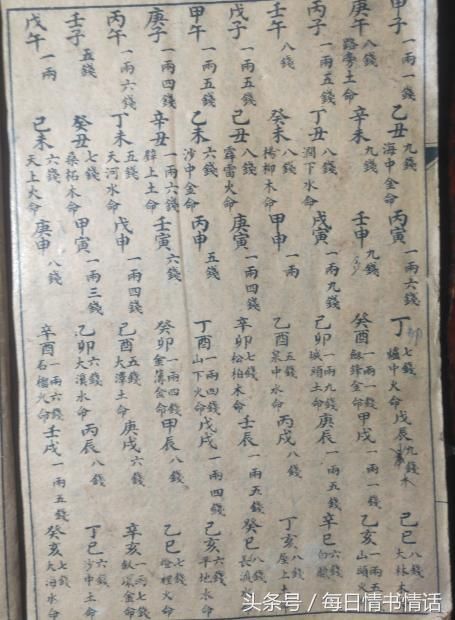 甲子 一兩一錢 乙丑 九錢 海中金命 丙寅 一兩六錢 丁卯 七錢 爐中火命 戊辰 九錢 木 己巳 八錢 大林木
庚午 八錢 路旁土命 辛未 九錢 壬申 九錢 癸酉 一兩一錢 釰鋒金命 甲戌 一兩一錢 乙亥 一兩五 山頭火
丙子 一兩五錢 丁丑 八錢 澗下水命 戊寅 一兩九錢 己卯 一兩九錢 城頭土命 庚辰 一兩五錢 辛巳 六錢 白臘
壬午 八錢 癸未 八錢 楊柳木命 甲申 一兩 乙酉 五錢 泉中水命 丙戌 八錢 丁亥 八錢 屋上
戊子 一兩五錢 己丑 八錢 霹雷火命 庚寅 一兩四錢 辛卯 七錢 松柏木命 壬辰 一兩五錢 癸巳 八錢
甲午 一兩五錢 乙未 六錢 沙中金命 丙申 五錢 丁酉 一兩四錢 山下火命 戊戌 一兩四錢 己亥 六錢 平地水命
庚子 一兩四錢 辛丑 一兩六錢 上土命 壬寅 六錢 癸卯 一兩四錢 金簿金命 甲辰 八錢 乙巳 七錢 燈裡火命
丙午 一兩六錢 丁未 五錢 天河水命 戊申 一兩四錢 己酉 五錢 大澤土命 庚戌 六錢 辛亥 一兩七錢 釵環金命
壬子 五錢 癸丑 七錢 桑柘木命 甲寅 一兩三錢 乙卯 六錢 大溪水命 丙辰 八錢 丁巳 六錢 沙中土命
戊午 一兩 己未 六錢 天上火命 庚申 八錢 辛酉 一兩六錢 石榴火命 壬戌 一兩五錢 癸亥 七錢 大海水命
头条号 / 每日情书情话